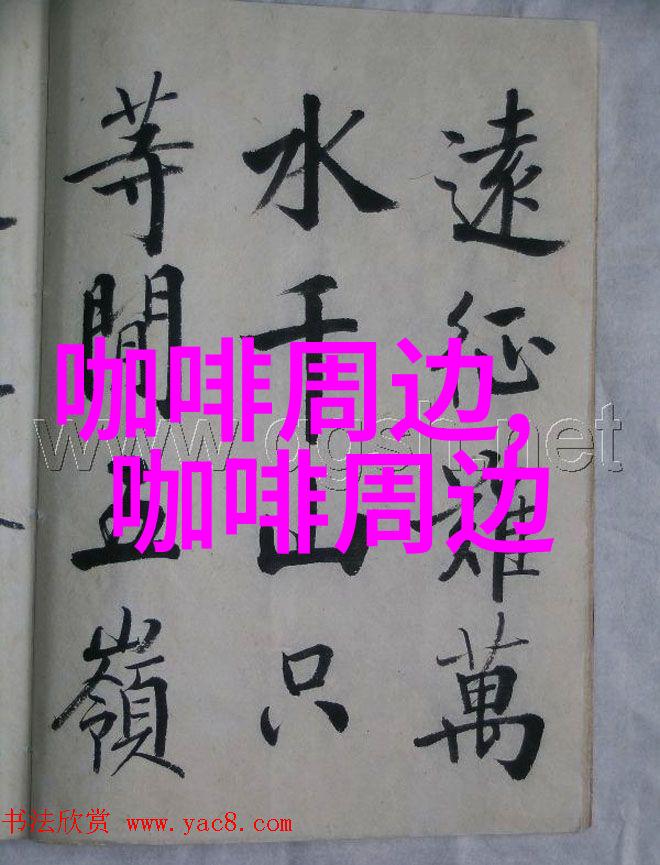 遠征難萬
水千山只
等閒五嶺
咖啡周边,
咖啡周边
www.dgsh.net
书法欣赏 www.yac8.com